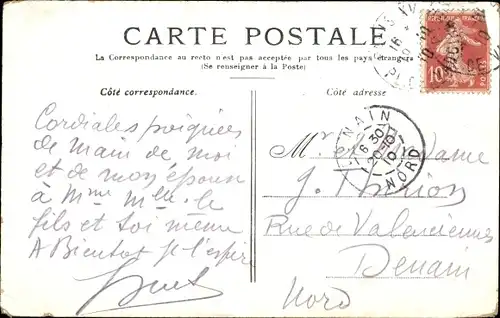 CARTE POSTALE
La Correspondance au recto n'est pas acceptée par tous les pays étrangers
(Se renseigner à la Poste)
Côté correspondance.
Côté adresse
Cordiales poignées
de main de moi
et de mon épouse
à Mme Melle le
fils et toi même
A Bientot je l'espère
NAIN
6 30
20-10
10
NORD
10
POSTES
M et Madame
J.
Rue de Valenciennes
Denain
Nord